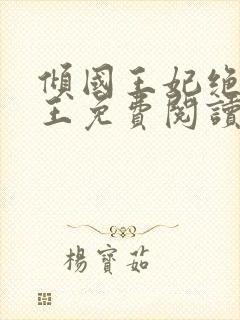 傾國王妃绝
王免費閱讀
楊寶茹